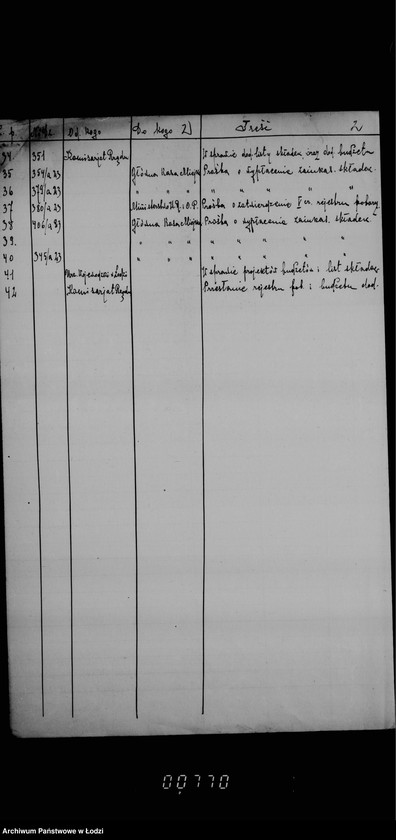 L. p. Od kogo Do kogo 2) Treść 2
34 351 Komisarjat Rządu W sprawie dod. listy składek oraz dod. budżetu
35 354/a 23 Główna Kasa Miejska Prośba o wypłacenie zainkas. składek.
36 379/a 23 " " " " " " " "
37 380/a 23 Ministerstwo W.R. i O.P. Prośba o zatwierdzenie rejestru
38 406/a 23 Główna Kasa Miejska Prośba o wypłacenie zainkas. składek
39. " " " " " " " "
40 345/a 23 " " " " " " " "
41 Urz. Wojewódzki w Łodzi W sprawie projektów budżetów i list składek
42 Komisarjat Rządu Przesłanie rejestru i budżetu dod.
00770
Archiwum Państwowe w Łodzi